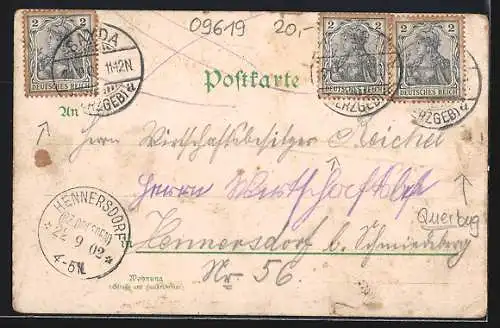 09619 20,-
2 2 2
SAYDA
11-12N
(ERZGEB)
DEUTSCHES REICH DEUTSCHES REICH DEUTSCHES REICH
Postkarte
(ERZGEB)
An
Herrn Wirtschaftsbesitzer Reichel
Herrn Wirtschaftsbes
Querbug
HENNERSDORF
22 9 02
4-5N.
in Hennersdorf b. Schmiedeberg
Wohnung
(Straße und Hausnummer)
Nr 56.